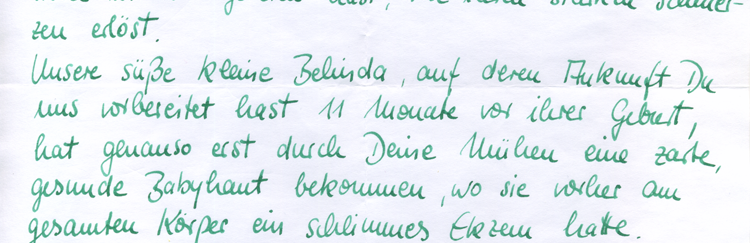 zen erlöst.
Unsere süße kleine Belinda, auf deren Ankunft Du
uns vorbereitet hast 11 Monate vor ihrer Geburt,
hat genauso erst durch Deine Mühen eine zarte,
gesunde Babyhaut bekommen, wo sie vorher am
gesamten Körper ein schlimmes Ekzem hatte.